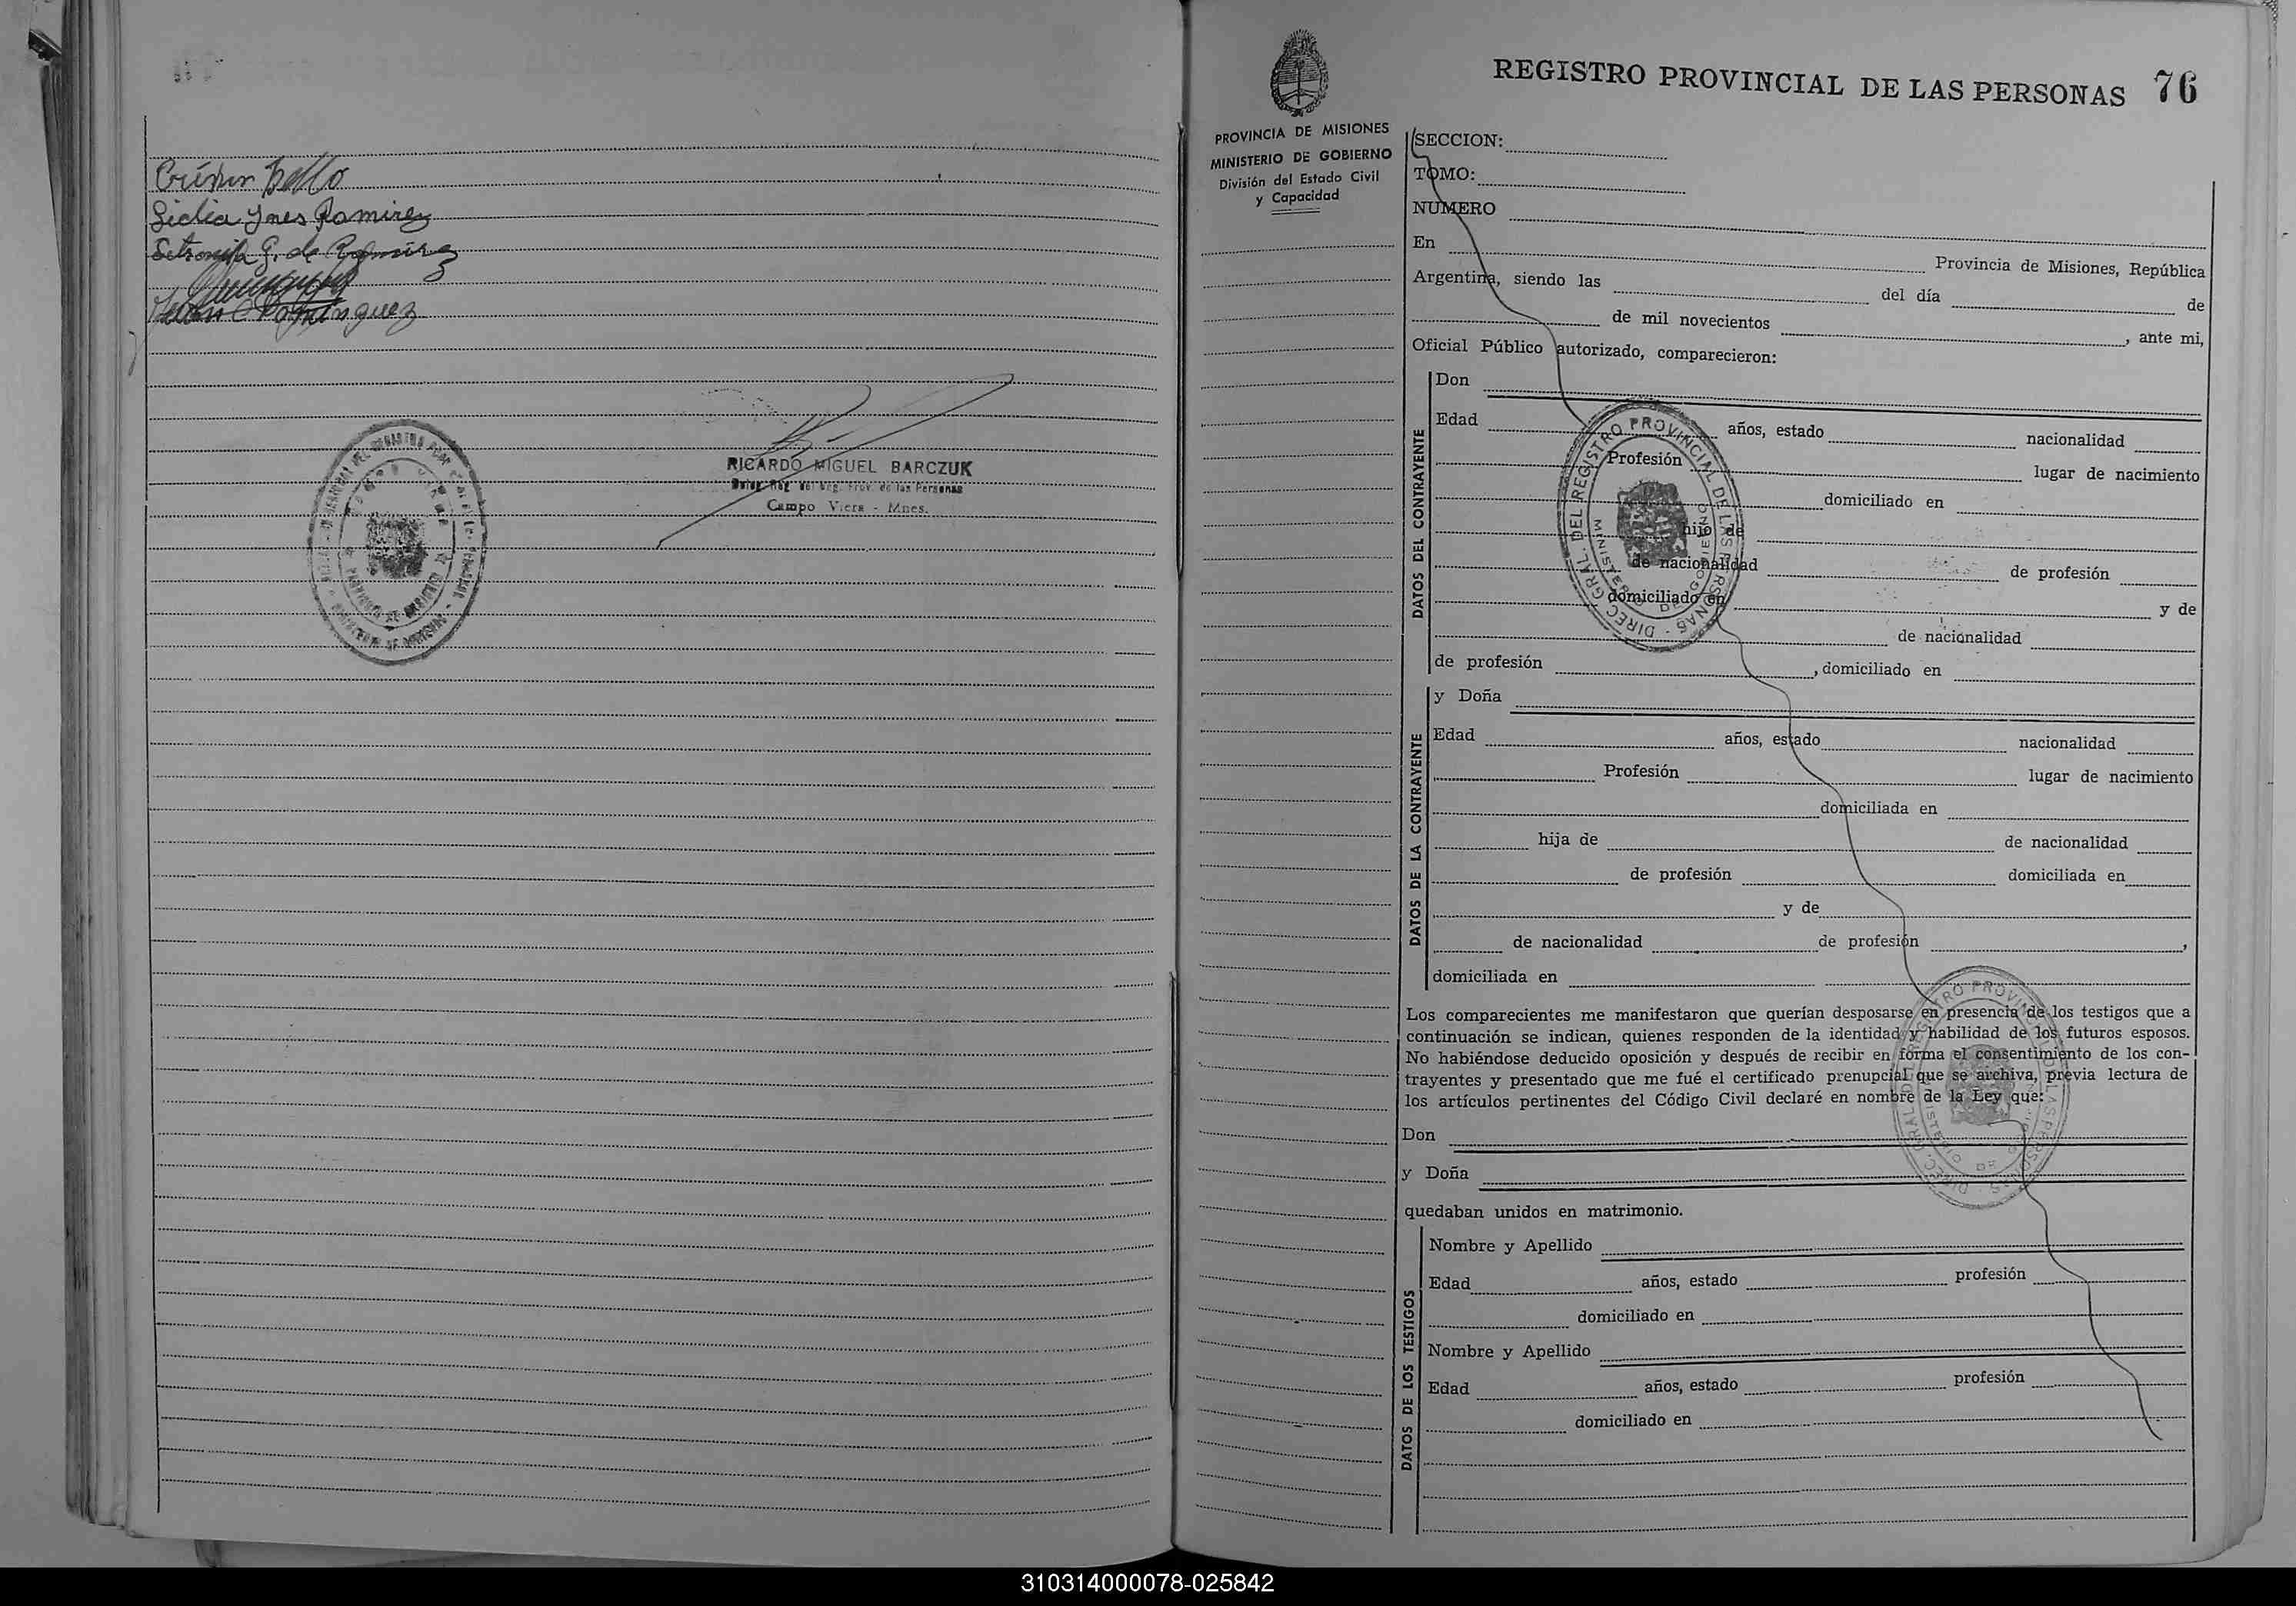 Lidia Ynes Ramirez
G. de Ramirez
Dominguez
RICARDO MIGUEL BARCZUK
Deleg. Reg. del Reg. Prov. de las Personas
Campo Viera - Mnes.
REGISTRO PROVINCIAL DE LAS PERSONAS 76
PROVINCIA DE MISIONES
MINISTERIO DE GOBIERNO
División del Estado Civil
y Capacidad
SECCION:
TOMO:
NUMERO
En Provincia de Misiones, República
Argentina, siendo las del día de
de mil novecientos , ante mi,
Oficial Público autorizado, comparecieron:
DATOS DEL CONTRAYENTE
Don
Edad años, estado nacionalidad
Profesión lugar de nacimiento
domiciliado en
hijo de
de nacionalidad de profesión
domiciliado en y de
de nacionalidad
de profesión , domiciliado en
DIREC. GRAL. DEL REGISTRO PROVINCIAL DE LAS PERSONAS
MINISTERIO DE GOBIERNO
DATOS DE LA CONTRAYENTE
y Doña
Edad años, estado nacionalidad
Profesión lugar de nacimiento
domiciliada en
hija de de nacionalidad
de profesión domiciliada en
y de
de nacionalidad de profesión ,
domiciliada en
Los comparecientes me manifestaron que querían desposarse en presencia de los testigos que a
continuación se indican, quienes responden de la identidad y habilidad de los futuros esposos.
No habiéndose deducido oposición y después de recibir en forma el consentimiento de los con-
trayentes y presentado que me fué el certificado prenupcial que se archiva, previa lectura de
los artículos pertinentes del Código Civil declaré en nombre de la Ley que:
Don
y Doña
quedaban unidos en matrimonio.
DATOS DE LOS TESTIGOS
Nombre y Apellido
Edad años, estado profesión
domiciliado en
Nombre y Apellido
Edad años, estado profesión
domiciliado en
310314000078-025842